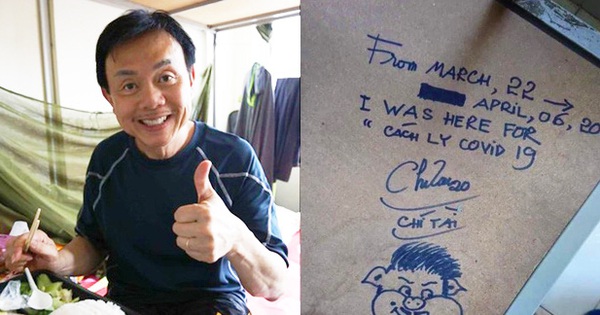 From MARCH, 22 →
APRIL, 06, 20
I WAS HERE FOR
" CACH LY COVID 19
ChíTài20
CHÍ TÀI